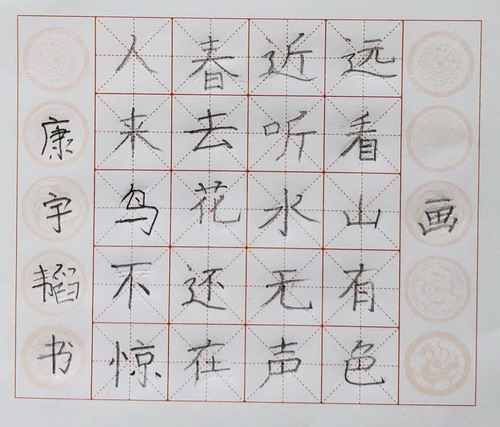 画
远看山有色
近听水无声
春去花还在
人来鸟不惊
康宇韬书